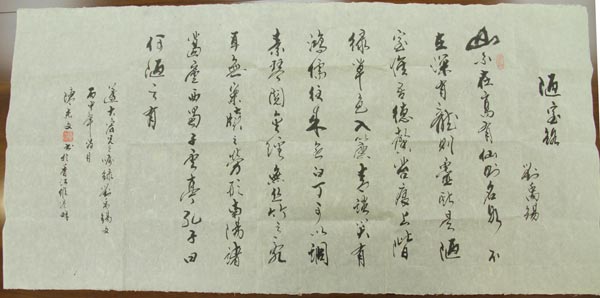 陋室銘
劉禹錫
山不在高有仙則名水不
在深有龍則靈斯是陋
室惟吾德馨苔痕上階
綠草色入簾青談笑有
鴻儒往來無白丁可以調
素琴閱金經無絲竹之亂
耳無案牘之勞形南陽諸
葛廬西蜀子雲亭孔子曰
何陋之有
兄之囑錄劉禹錫文
丙申年月
書於香江